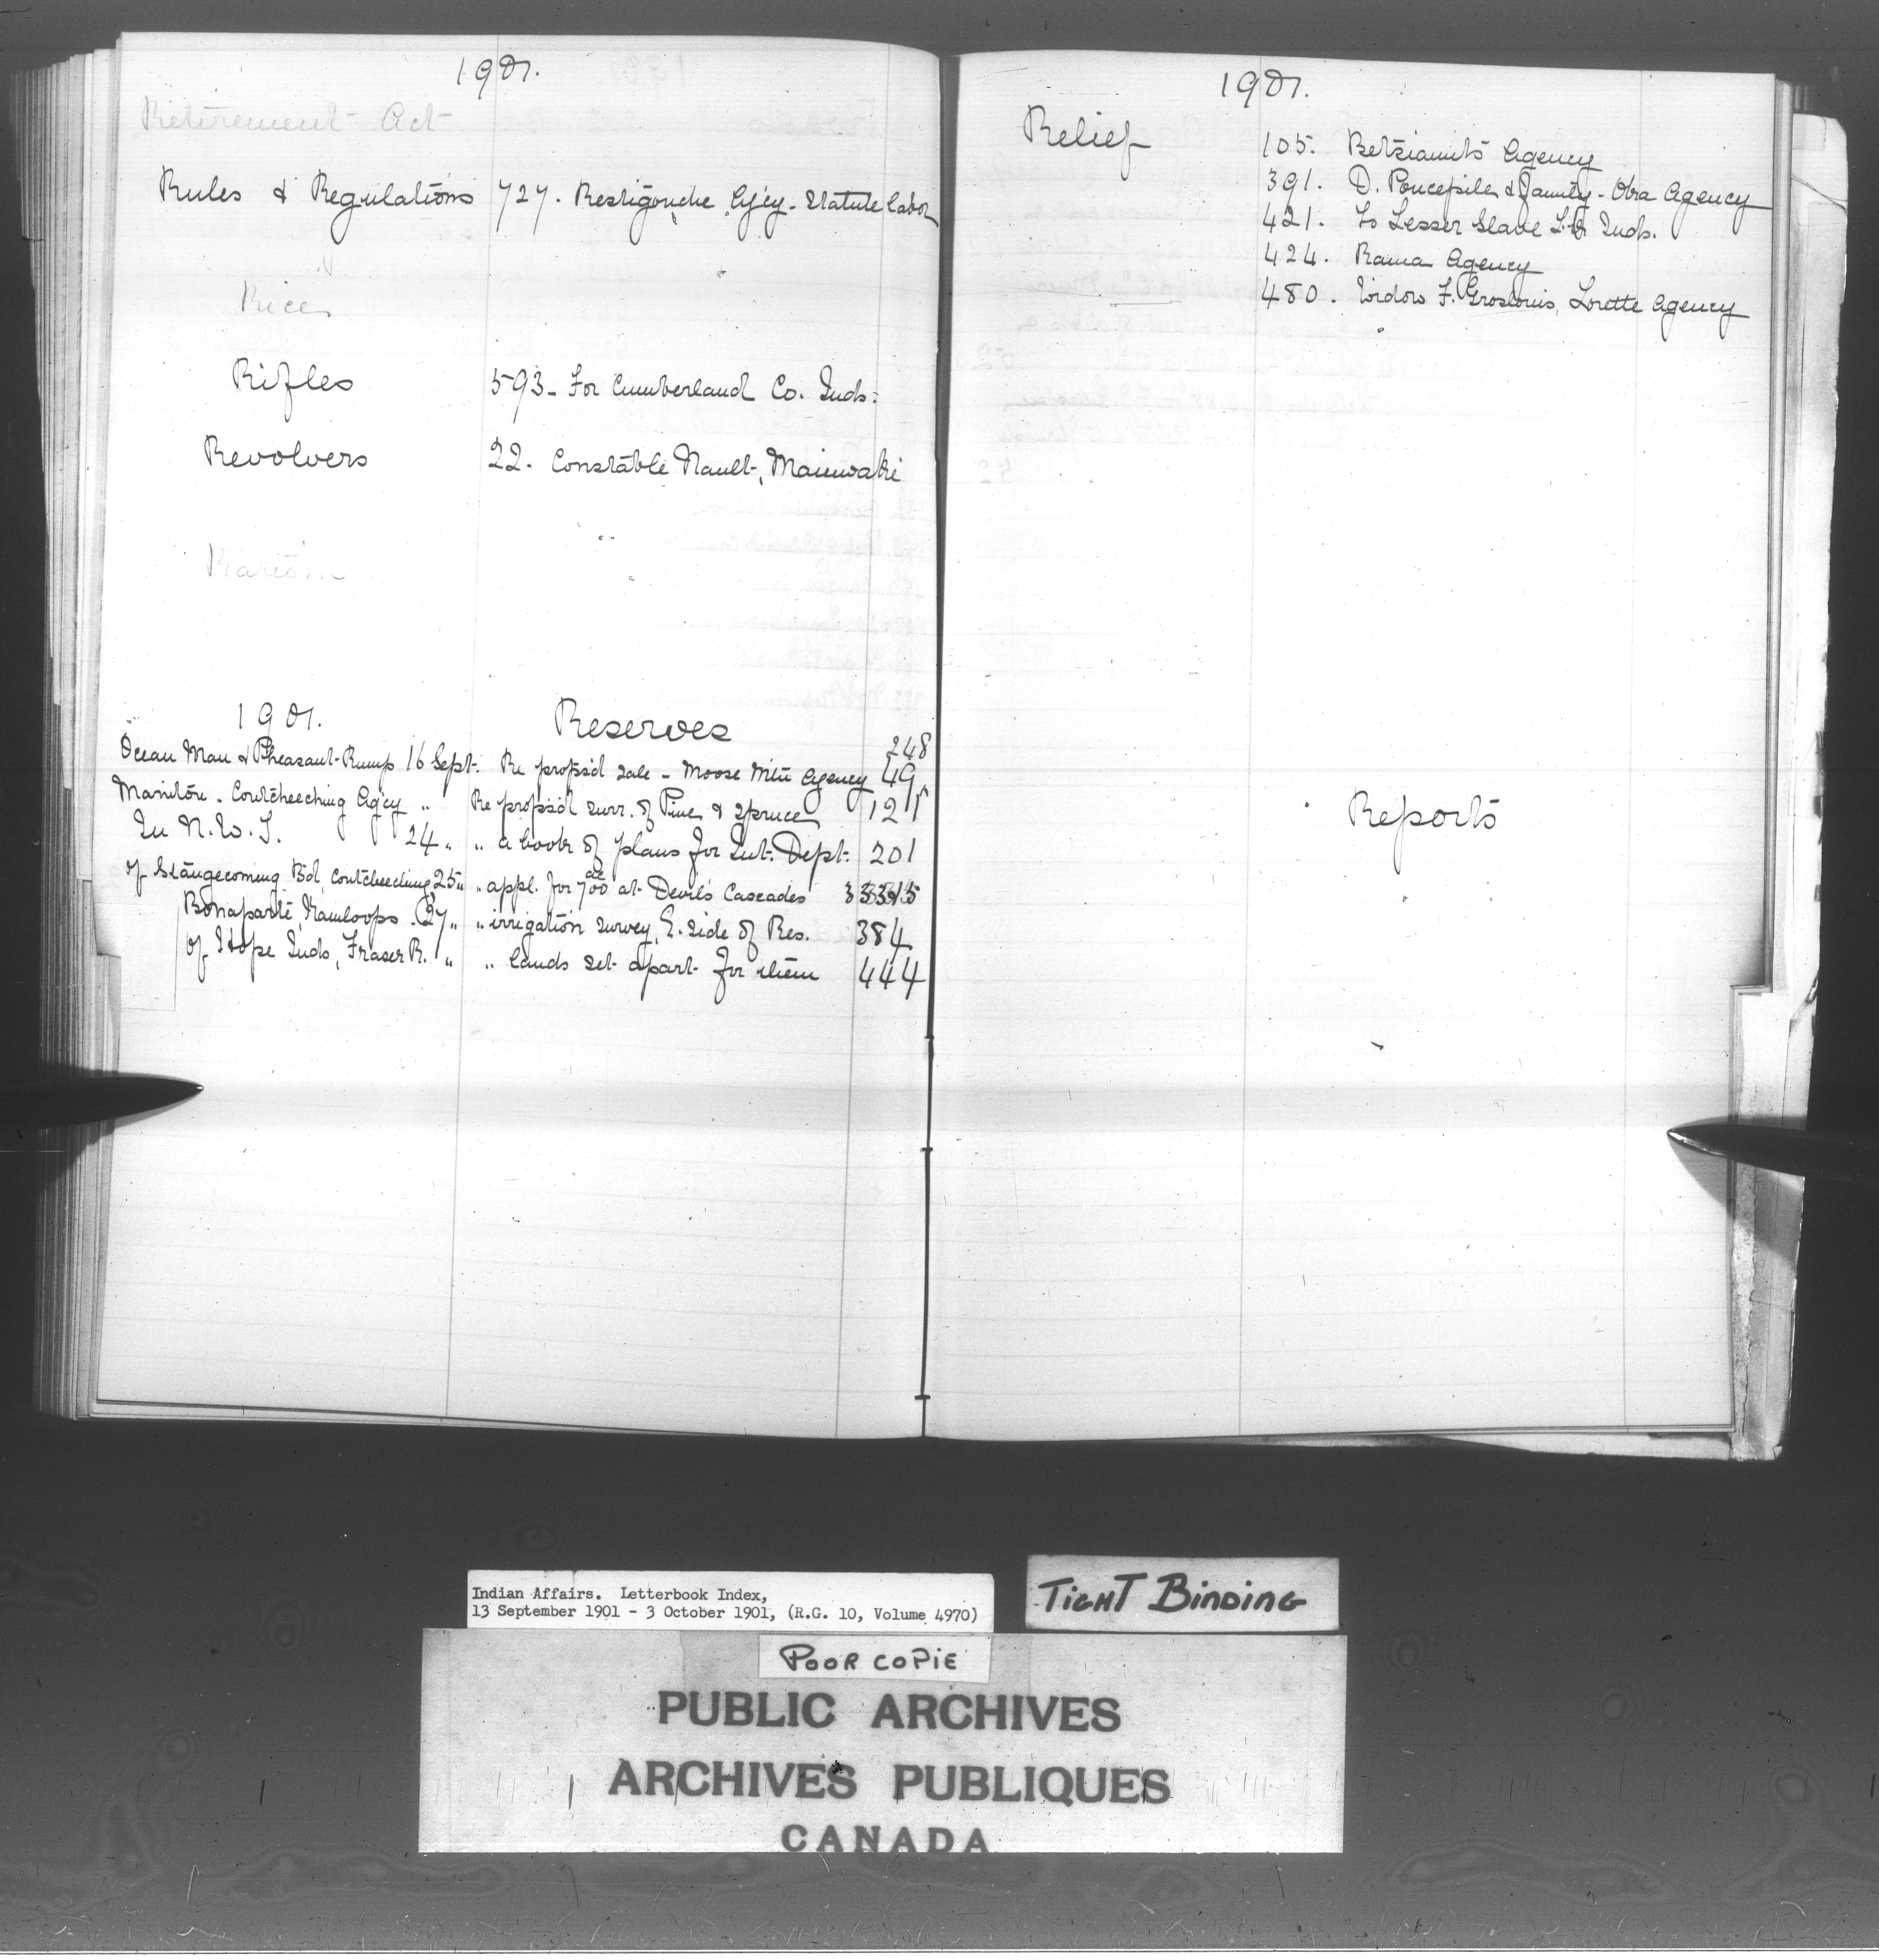 1901.
Retirement Act
Rules & Regulations 727. Restigouche Ag'cy. Statute labor
Rice
Rifles 593 - For Cumberland Co. Inds:
Revolvers 22. Constable Nault, Maniwaki
Ration
1901. Reserves
248
Ocean Man & Pheasant Rump 16 Sept. Re propos'd sale - Moose Mtn Agency 49
Manitou. Coutcheeching Ag'cy " Re propos'd surr. of Pine & Spruce 121
In N.W.T. 24 " " a book of plans for Int. Dept. 201
of Stangecoming Bd, Coutcheeching 25 " " appl. for 700 ac at Devil's Cascades
Bonaparte, Kamloops. 27 " " irrigation survey, E. side of Res. 384
of Hope Inds, Fraser R. " " lands set apart for them 444
1901.
Relief 105. Betsiamits Agency
391. D. & Family - Agency
421. To Lesser Slave Inds.
424. Rama Agency
480. Widow F. Groslouis, Lorette Agency
Reports
Indian Affairs. Letterbook Index,
13 September 1901 - 3 October 1901, (R.G. 10, Volume 4970)
TIGHT BINDING
POOR COPIE
PUBLIC ARCHIVES
ARCHIVES PUBLIQUES
CANADA